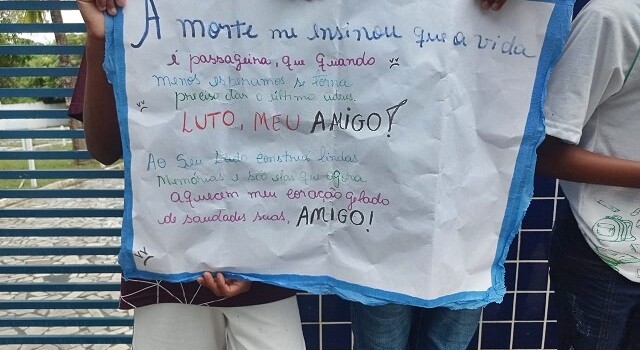 A morte me ensinou que a vida
é passageira, que quando
menos esperamos se torna
preciso dar o último adeus.
LUTO, MEU AMIGO!
Ao seu Lado construí lindas
memórias e são elas que agora
aquecem meu coração gelado
de saudades suas, AMIGO!